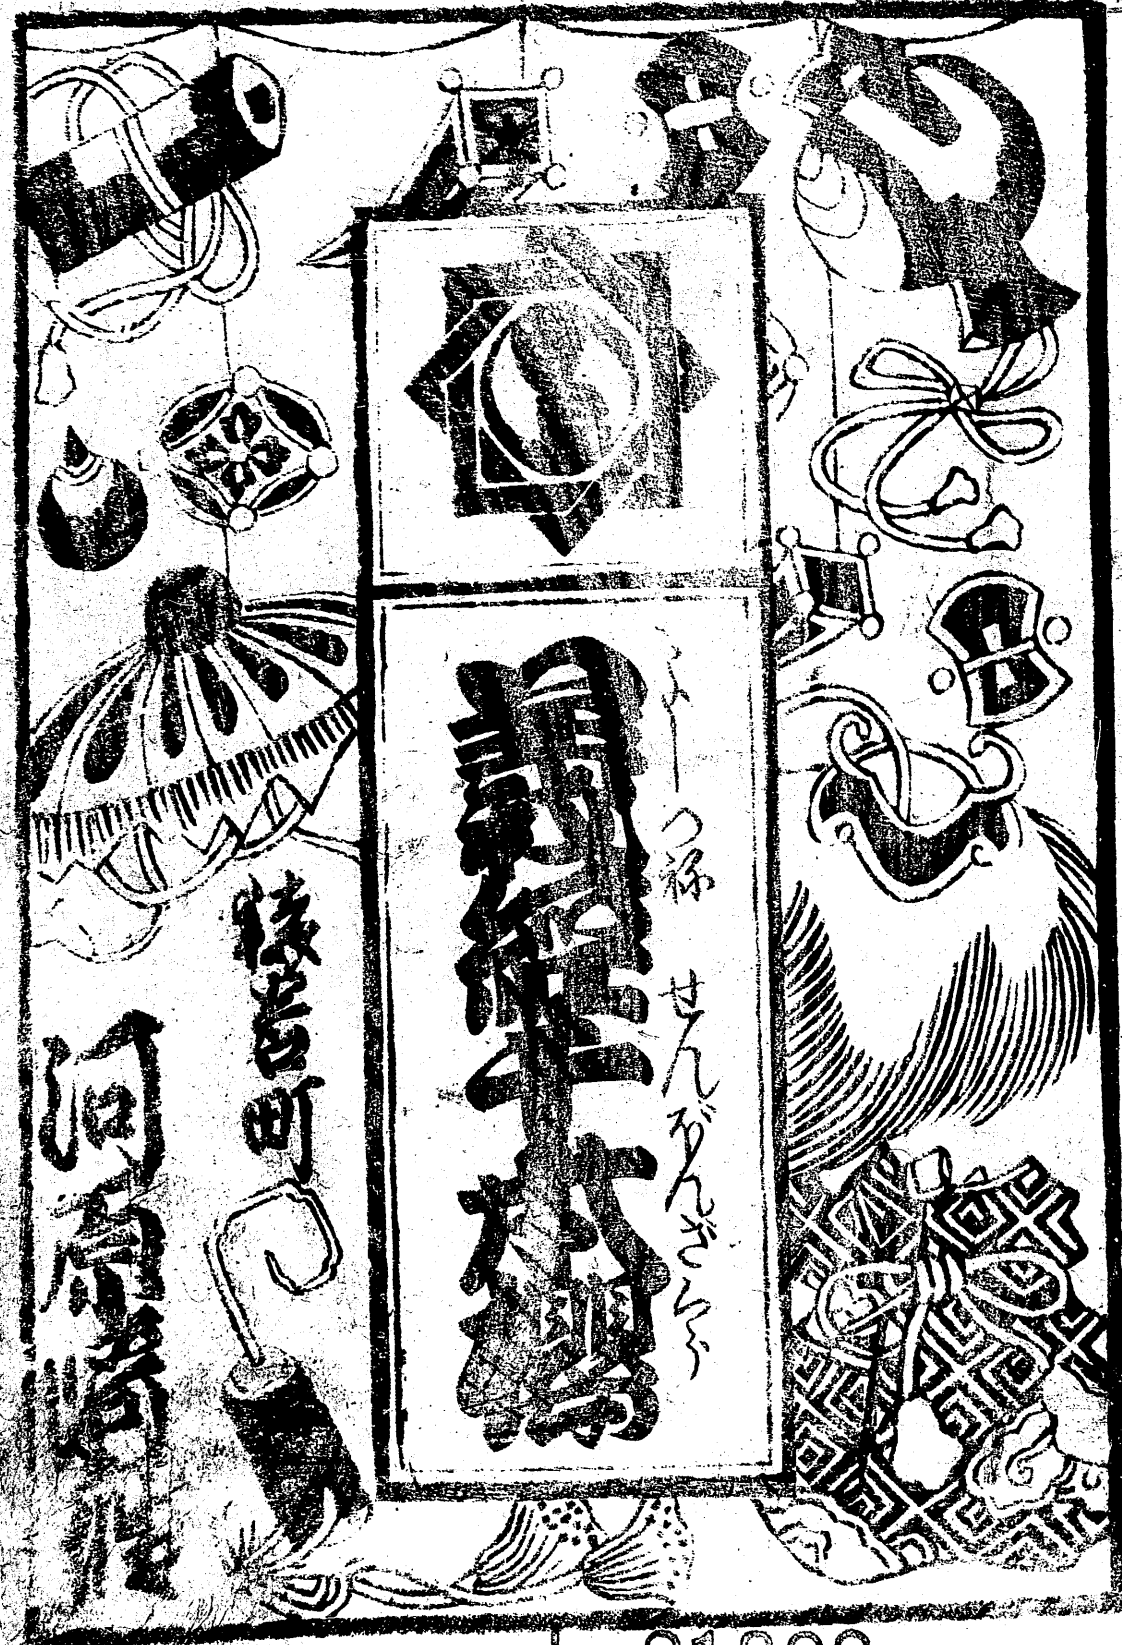 よしつ祢 せんぼんざくら
義經千本櫻
猿若町
河原崎座